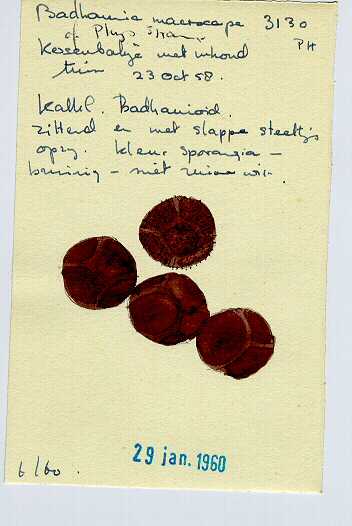 Badhamia macrocarpa 3130
cf Phys PH
met inhoud
tuin 23 oct 58.
Kalkl. Badhamioid.
zittend en met slappe steeltjes
opzg. kleur sporangia –
bruinig – niet zuiver wit.
29 jan. 1960
6/60.